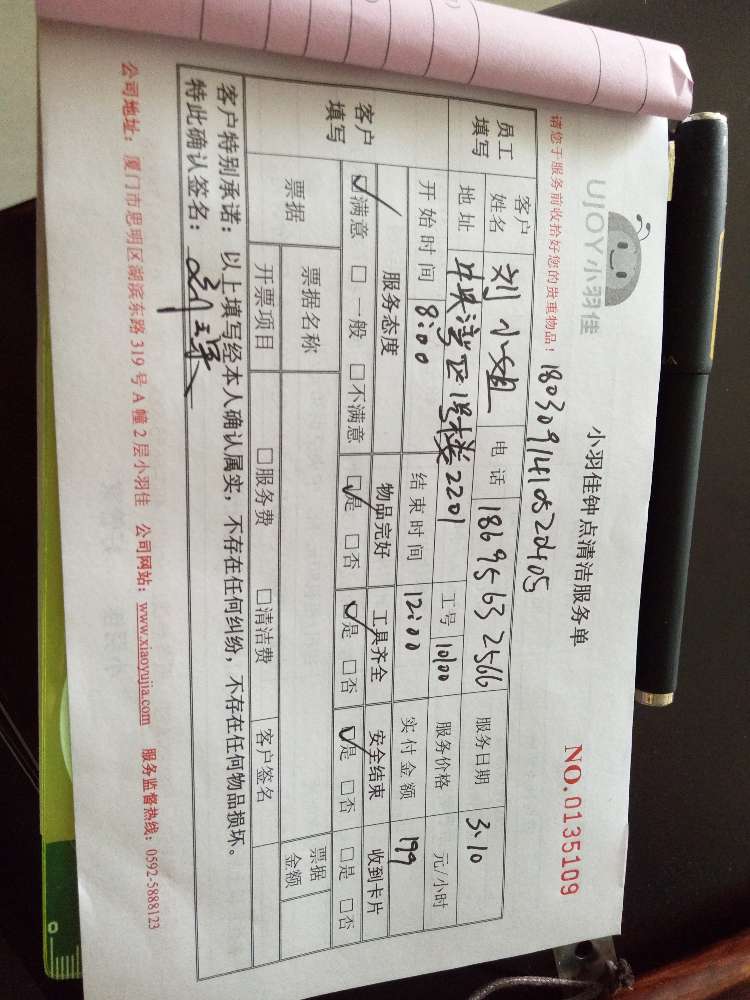 UJOY小羽佳
小羽佳钟点清洁服务单
NO.0135109
请您于服务前收拾好您的贵重物品！
180309141052405
员工填写
客户姓名 刘小姐 电话 18695632566 服务日期 3.10
地址 中央湾区1号楼2201 工号 10100 服务价格 元/小时
开始时间 8:00 结束时间 12:00 实付金额 199
客户填写
服务态度 物品完好 工具齐全 安全结束 收到卡片
☑满意 □一般 □不满意 ☑是 □否 ☑是 □否 ☑是 □否 □是 □否
票据 票据名称 票据金额
开票项目 □服务费 □清洁费 客户签名
客户特别承诺：以上填写经本人确认属实，不存在任何纠纷，不存在任何物品损坏。
特此确认签名：
公司地址：厦门市思明区湖滨东路319号A幢2层小羽佳 公司网站：www.xiaoyujia.com 服务监督热线：0592-5888123